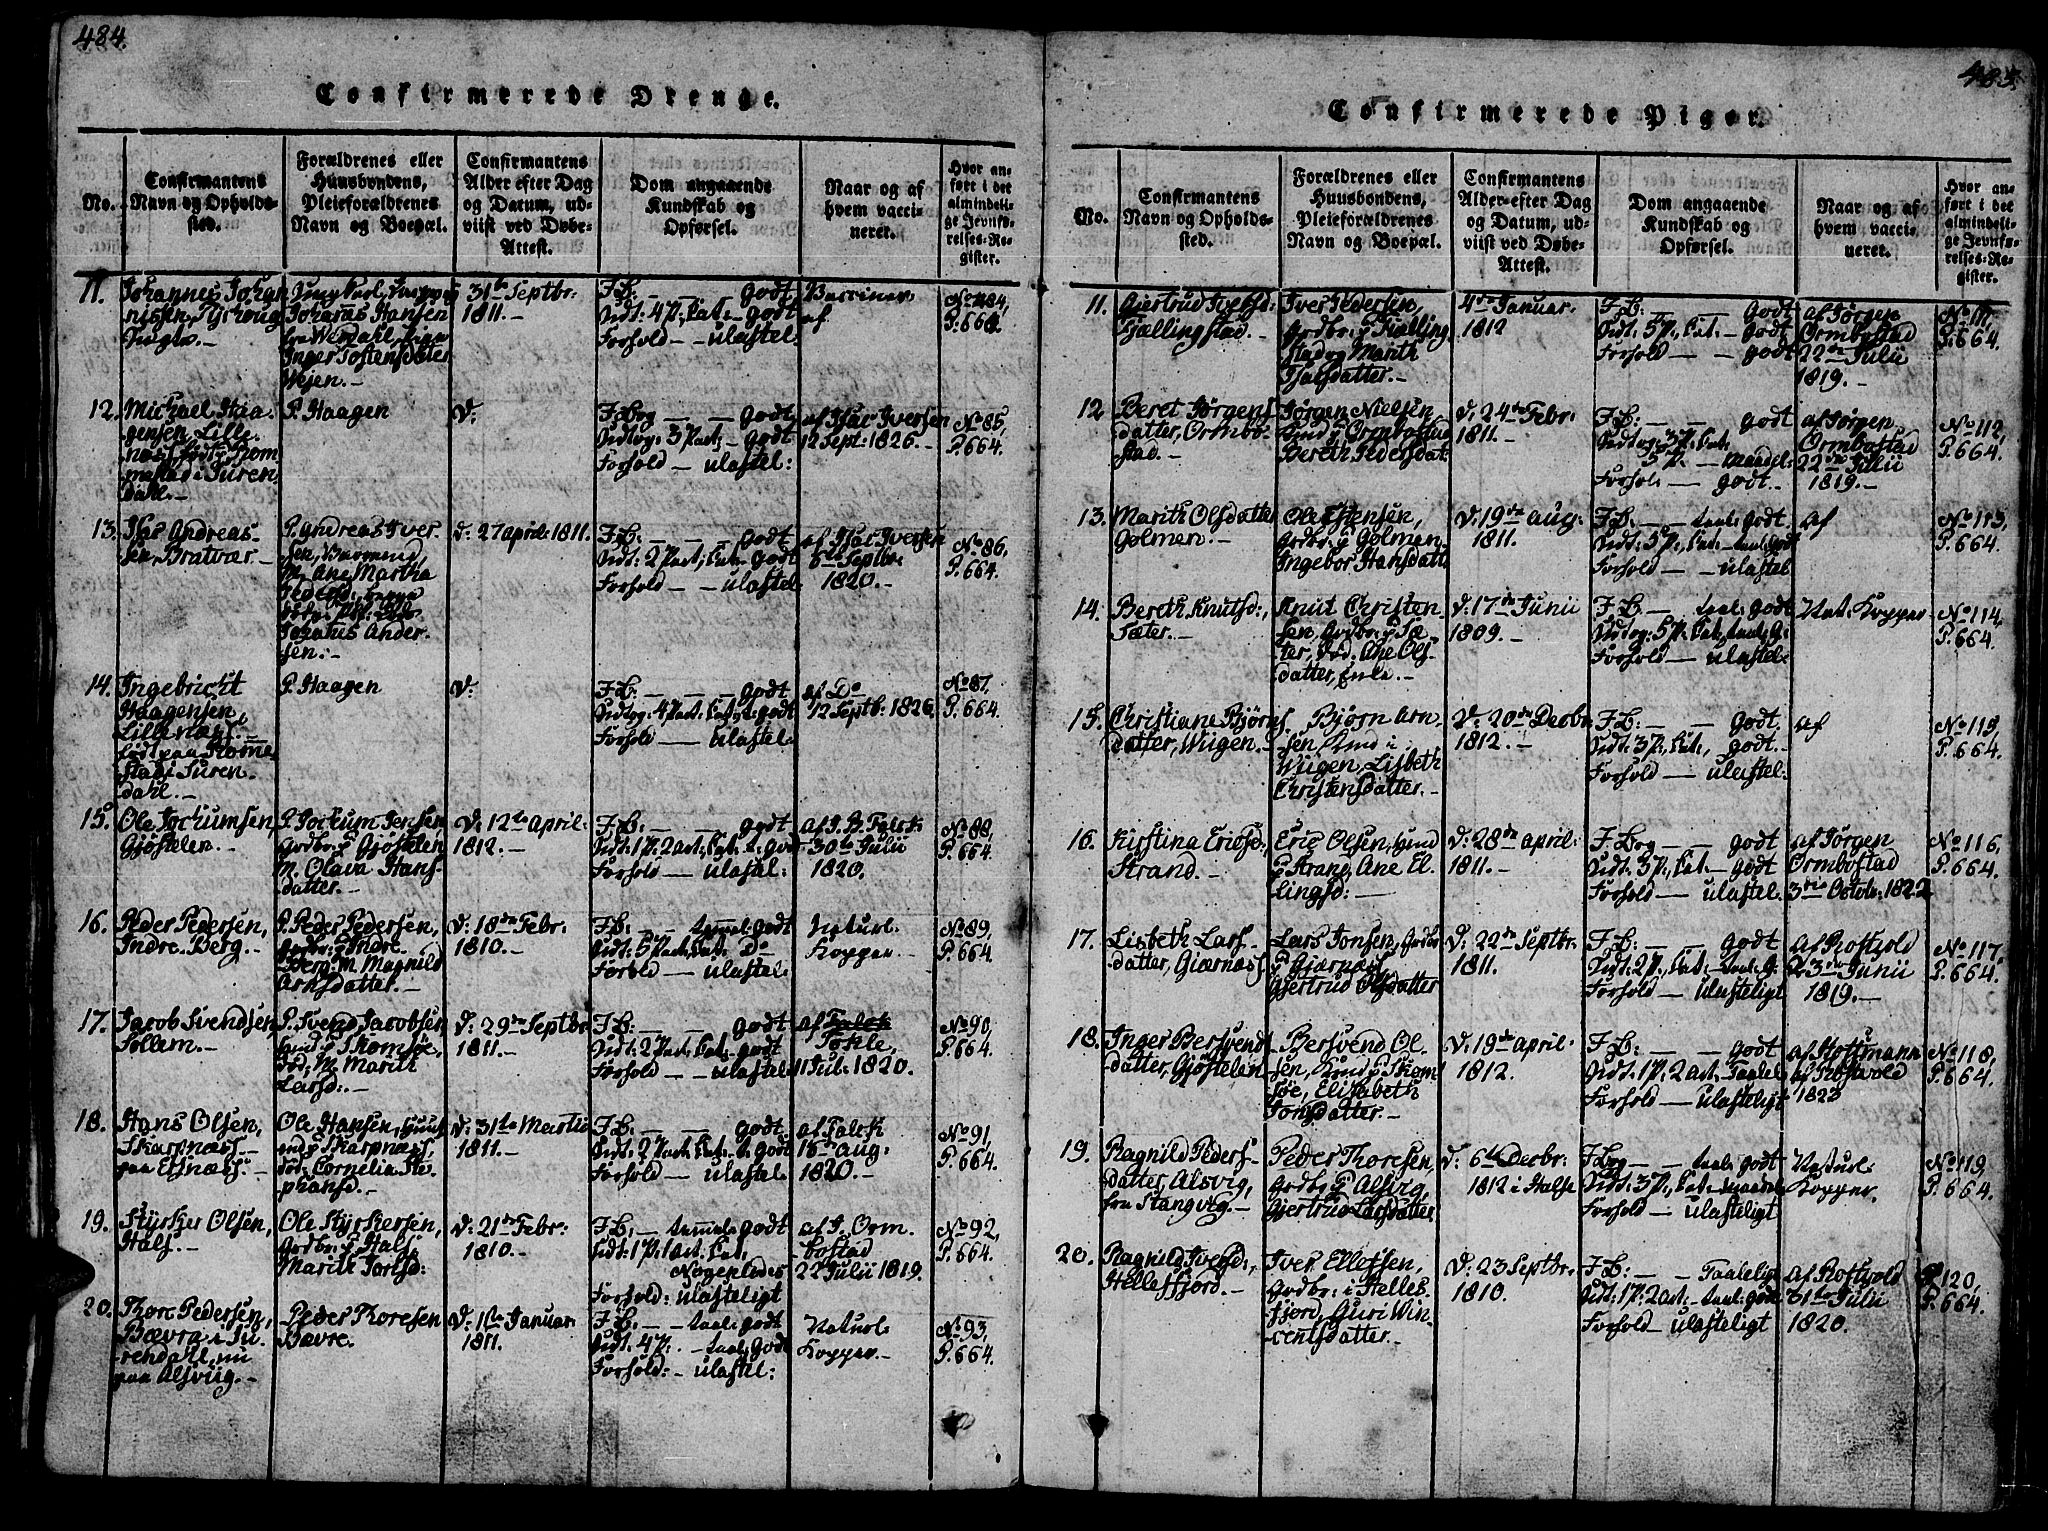 484.
Confirmerede Drenge.
No.
Confirmantens
Navn og Opholds-
sted.
Forældrenes eller
Huusbondens,
Pleieforældrenes
Navn og Boepæl.
Confirmantens
Alder efter Dag
og Datum, ud-
viist ved Døbe-
Attest.
Dom angaaende
Kundskab og
Opførsel.
Naar og af
hvem vacci-
neret.
Hvor an-
ført i det
almindeli-
ge Jevnfø-
relses-Re-
gister.
11.
Johannes Johan
nissen,
Johannes Hansen
fra Werdahl,
Inger Tostensdatter
Wejen.-
31te Septbr:
1811.-
F.B: — — godt
Udt: 4 P:, Cat: - godt
Forhold — ulastel:
af
No 84,
P.664.
12.
Michael Haa-
gensen, Lille-
næs, født
i Suren
dahl.-
P. Haagen
V:
F.B og — — godt
Udtog: 3 Part: - godt
Forhold — ulastel:
af Iver Iversen
12 Sept: 1826.-
No 85,
P.664.
13.
Andreas-
sen, Bratvær.-
P. Andreas Iver
sen,
M. Ane Martha
Johanes Ander-
sen.-
V: 27 april: 1811.
F.B: — — godt
Udt: 2 Part, Cat: - godt
Forhold — ulastel:
af Iversen
6te Septbr:
1820.-
No 86,
P.664.
14.
Ingebricht
Haagensen,
Lillenæs.-
født paa
Suren-
dahl.-
P. Haagen
V:
F.B: — — godt
Udtog: 4 Part: Cat: t: godt
Forhold — ulastel:
af Do
12 Septb: 1826.
No 87.
P.664.
15.
Ole Jochumsen
Gjøstelen.-
P. Jochum Jensen
Grdbr: p Gjøstelen
M. Olava Hans-
datter.-
V: 12te April:
1812.-
F.B: — — godt
Udt: 1 P: 2 art:, Cat: t: godt
Forhold — ulastel:
af J. B. Falck
30te Julii
1820.
No 88,
P.664.
16.
Peder Pedersen,
Indre Berg.-
P. Peder Pedersen,
Grdbr: p Indre
Berg: M. Magnild
Arnsdatter.-
V: 18de Febr:
1810.-
F.B: — temmel: godt
Udt: 5 Part: Cat: Do
Forhold — ulastel:
Naturl.
Kopper.-
No 89,
P.664.
17.
Jacob Svendsen
Sollem.-
P. Svend Jacobsen
Huusmd p Skomsøe,
død, M. Marith
Larsd:.-
V: 29de Septbr:
1811.-
F.B: — — godt
Udt: 2 Part: Cat: - godt
Forhold — ulastel:
af Falck
Tohle,
11 Jul: 1820.
No 90,
P.664.
18.
Hans Olsen,
Skarpnæss.-
paa Essnæss.-
Ole Hansen, Huus
md p Skarpnæss,
død, Cornelia Ste-
phansd.-
V: 31te Martii
1811.-
F.B: — — godt
Udt: 2 Part: Cat: t: godt
Forhold — ulastel:
af Falck
15de aug:
1820.-
No 91,
P.664.
19.
Styrker Olsen,
Hals.-
Ole Styrkersen,
Grdbr: p Hals,
Marith Torlsd:
V: 21de Febr:
1810.-
F.B: — temmel: godt
Udt: 1 P: 1 art. Cat:
Nogenledes
Forhold: ulasteligt
af J. Orm-
bostad
22 Julii 1819.
No 92,
P.664.
20.
Thore Pedersen,
Bævra i Su-
rendahl, nu
paa Alsviig.-
Peder Thoresen
Bævre.
V: 1te Januar:
1811.
F.B: — taal: godt
Udt: 4 P: - taal: godt
Forhold: - ulastel:
Naturl.
Kopper.-
No 93,
P.664.
485.
Confirmerede Piger.
No.
Confirmantens
Navn og Opholds-
sted.
Forældrenes eller
Huusbondens,
Pleieforældrenes
Navn og Boepæl.
Confirmantens
Alder efter Dag
og Datum, ud-
viist ved Døbe-
Attest.
Dom angaaende
Kundskab og
Opførsel.
Naar og af
hvem vacci-
neret.
Hvor an-
ført i det
almindeli-
ge Jevnfø-
relses-Re-
gister.
11.
Giertrud Iversd:
Fjællingstad.-
Iver Pedersen,
Grdbr: p Fjælling
stad og Marith
datter.-
4de Januar:
1812
F.B: — — godt
Udt: 5 P:, Cat: - godt
Forhold — — godt
af Jørgen
Ormbostad
22de Julii
1819.-
No 111,
P.664.
12
Beret Jørgens-
datter, Ormbo-
stad.-
Jørgen Nielsen
Ormbostad
Bereth Pedersdat:
V: 24de Febr:
1811.-
F.B: — — godt
Udtog: 3 P:, Cat:
5 P: — Maadel:
Forhold — godt.-
af Jørgen
Ormbostad
22de Julii
1819.-
No 112,
P.664.
13.
Marith Olsdatter
Golmen.-
Ole Estensen,
Grdbr: p Golmen,
Ingebor Hansdatt:
V: 19de aug:
1811.-
F.B: — taal: godt
Udt: 5 P:, Cat: - taal: godt
Forhold — ulastel
af
No 113,
P.664.
14.
Bereth Knutsd:,
Sæter.-
Knut Christen-
sen, Grdbr: p Sæ-
ter, død: Ane Ols-
datter, Enke.-
V: 17de Junii
1809.-
F.B: — taal: godt
Udtog: 5 P: Cat, taal: g:
Forhold — ulastel:
Nat: Kopper
No 114,
P.664.
15.
Christiane Bjørns-
datter, Wiigen.-
Bjørn Arn-
sen, Huusmd i
Wiigen, Lisbeth
Christensdatter.-
V: 20de Decbr:
1812.-
F.B: — — godt
Udt: 3 P:, Cat:, godt.-
Forhold — ulastel:
af
No 115,
P.664.
16.
Kirstina Ericsd:
Strand.-
Eric Olsen, Huusmd
p Strand, Ane El-
lingsd:-
V: 28de april:
1811.-
F.B og — godt
Udt: 3 P:, Cat: - godt
Forhold — ulastel:
af Jørgen
Ormbostad
3die Octob: 1822
No 116,
P.664.
17.
Lisbeth Lars-
datter, Gjærnæss
Lars Jonsen, Grdbr
p Gjærnæss,
Gjertrud Olsdatter
V: 22de Septbr:
1811.
F.B: — — godt
Udt: 2 P:, Cat: - taal: G:
Forhold — ulasteligt
af Rostvold
23de Junii
1819.-
No 117.
P.664.
18.
Inger Bersvend-
datter, Gjøstelen
Bersvend Ol-
sen, Huusmd p Skom-
søe, Elisabeth
Jonsdatter.-
V: 19de april:
1812.
F.B: — — godt
Udt: 1 P:, 2 art: Taalel
Forhold — ulasteligt
af Hoffmann
af Rostvold
1823
No 118,
P.664.
19.
Ragnild Peders-
datter, Alsvig,
fra Stangvig.-
Peder Thoresen,
Grdbr: p Alsvig,
Gjertrud Larsdatter
V: 6te Decbr:
1812 i Halse
F.B og — taal: godt
Udt: 3 P:, Cat: maadel:
Forhold — ulasteligt
Naturl
Kopper.
No 119,
P.664.
20.
Ragnild Iversd:,
Hellesfjord.-
Iver Ellefsen,
Grdbr: i Helles-
fjord, Guri Win-
centsdatter.-
V: 23 Septbr:
1810.
F.B: — — Taalelig
Udt: 1 P: 2 art: - taal: godt
Forhold — ulasteligt
af Rostvold
31te Julii
1820.
120,
P.664.